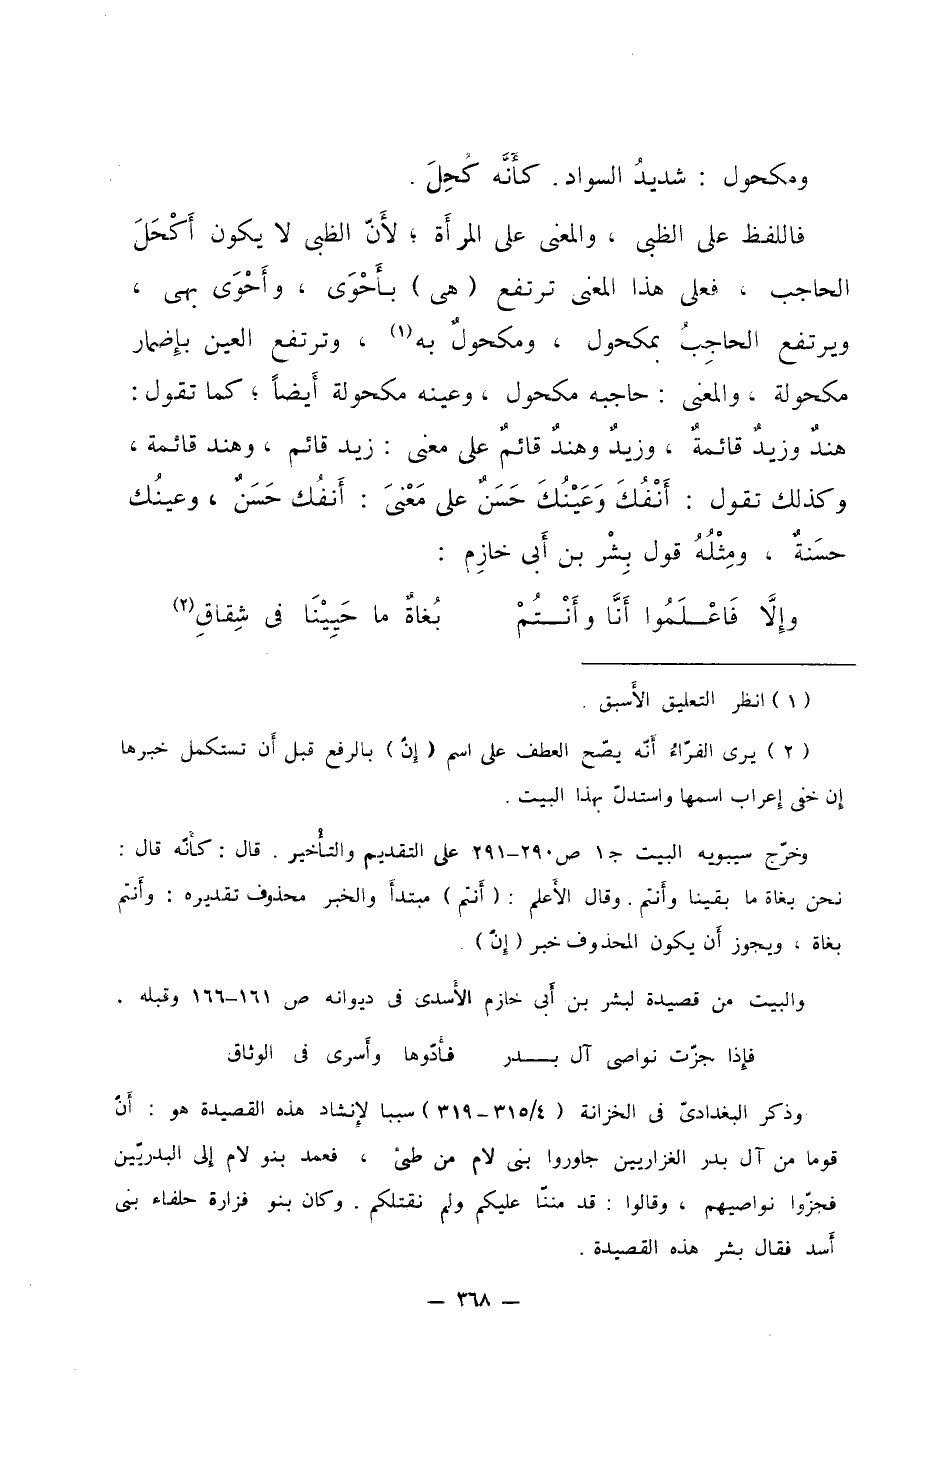 ومكحول : شديدُ السواد . كأَنَّه كُحِلَ .
فاللفظ على الظبى ، والمعنى على المرأة ؛ لأَنّ الظبى لا يكون أَكْحَلَ
الحاجب ، فعلى هذا المعنى ترتفع ( هى ) بأَحْوَى ، وأَحْوَى بهى ،
ويرتفع الحاجِبُ بمكحول ، ومكحولٌ به(١) ، وترتفع العين بإِضمار
مكحولة ، والمعنى : حاجبه مكحول ، وعينه مكحولة أَيضاً ؛ كما تقول :
هندٌ وزيدٌ قائمةٌ ، وزيدٌ وهندٌ قائمٌ على معنى : زيد قائم ، وهند قائمة ،
وكذلك تقول : أَنْفُكَ وَعَيْنُكَ حَسَنٌ على مَعْنىَ : أَنفُك حَسَنٌ ، وعينُك
حسَنةٌ ، ومِثْلُهُ قول بِشْر بن أَبى خازِم :
وإِلَّا فَاعْـلَمُوا أَنَّا وأَنْـتُمْ بُغاةٌ ما حَيِيْنَا فى شِقاقِ(٢)
( ١ ) انظر التعليق الأَسبق .
( ٢ ) يرى الفرّاءُ أَنّه يصّح العطف على اسم ( إِنّ ) بالرفع قبل أَن تستكمل خبرها
إِن خفى إِعراب اسمها واستدلّ بهذا البيت .
وخرّج سيبويه البيت ج١ ص٢٩٠–٢٩١ على التقديم والتأْخير . قال : كأَنّه قال :
نحن بغاة ما بقينا وأَنتم . وقال الأَعلم : ( أَنتم ) مبتدأ والخبر محذوف تقديره : وأَنتم
بغاة ، ويجوز أَن يكون المحذوف خبر ( إِنّ ) .
والبيت من قصيدة لبشر بن أَبى خازم الأَسدى فى ديوانه ص ١٦١–١٦٦ وقبله .
فإِذا جزّت نواصى آل بـدر فأَدّوها وأَسرى فى الوثاق
وذكر البغدادىّ فى الخزانة ( ٣١٥/٤ – ٣١٩ ) سببا لإِنشاد هذه القصيدة هو : أَنّ
قوما من آل بدر الغزاريين جاوروا بنى لام من طىْ ، فعمد بنو لام إِلى البدريّين
فجزّوا نواصيهم ، وقالوا : قد مننّا عليكم ولم نقتلكم . وكان بنو فزارة حلفاء بنى
أَسد فقال بشر هذه القصيدة .
— ٣٦٨ —